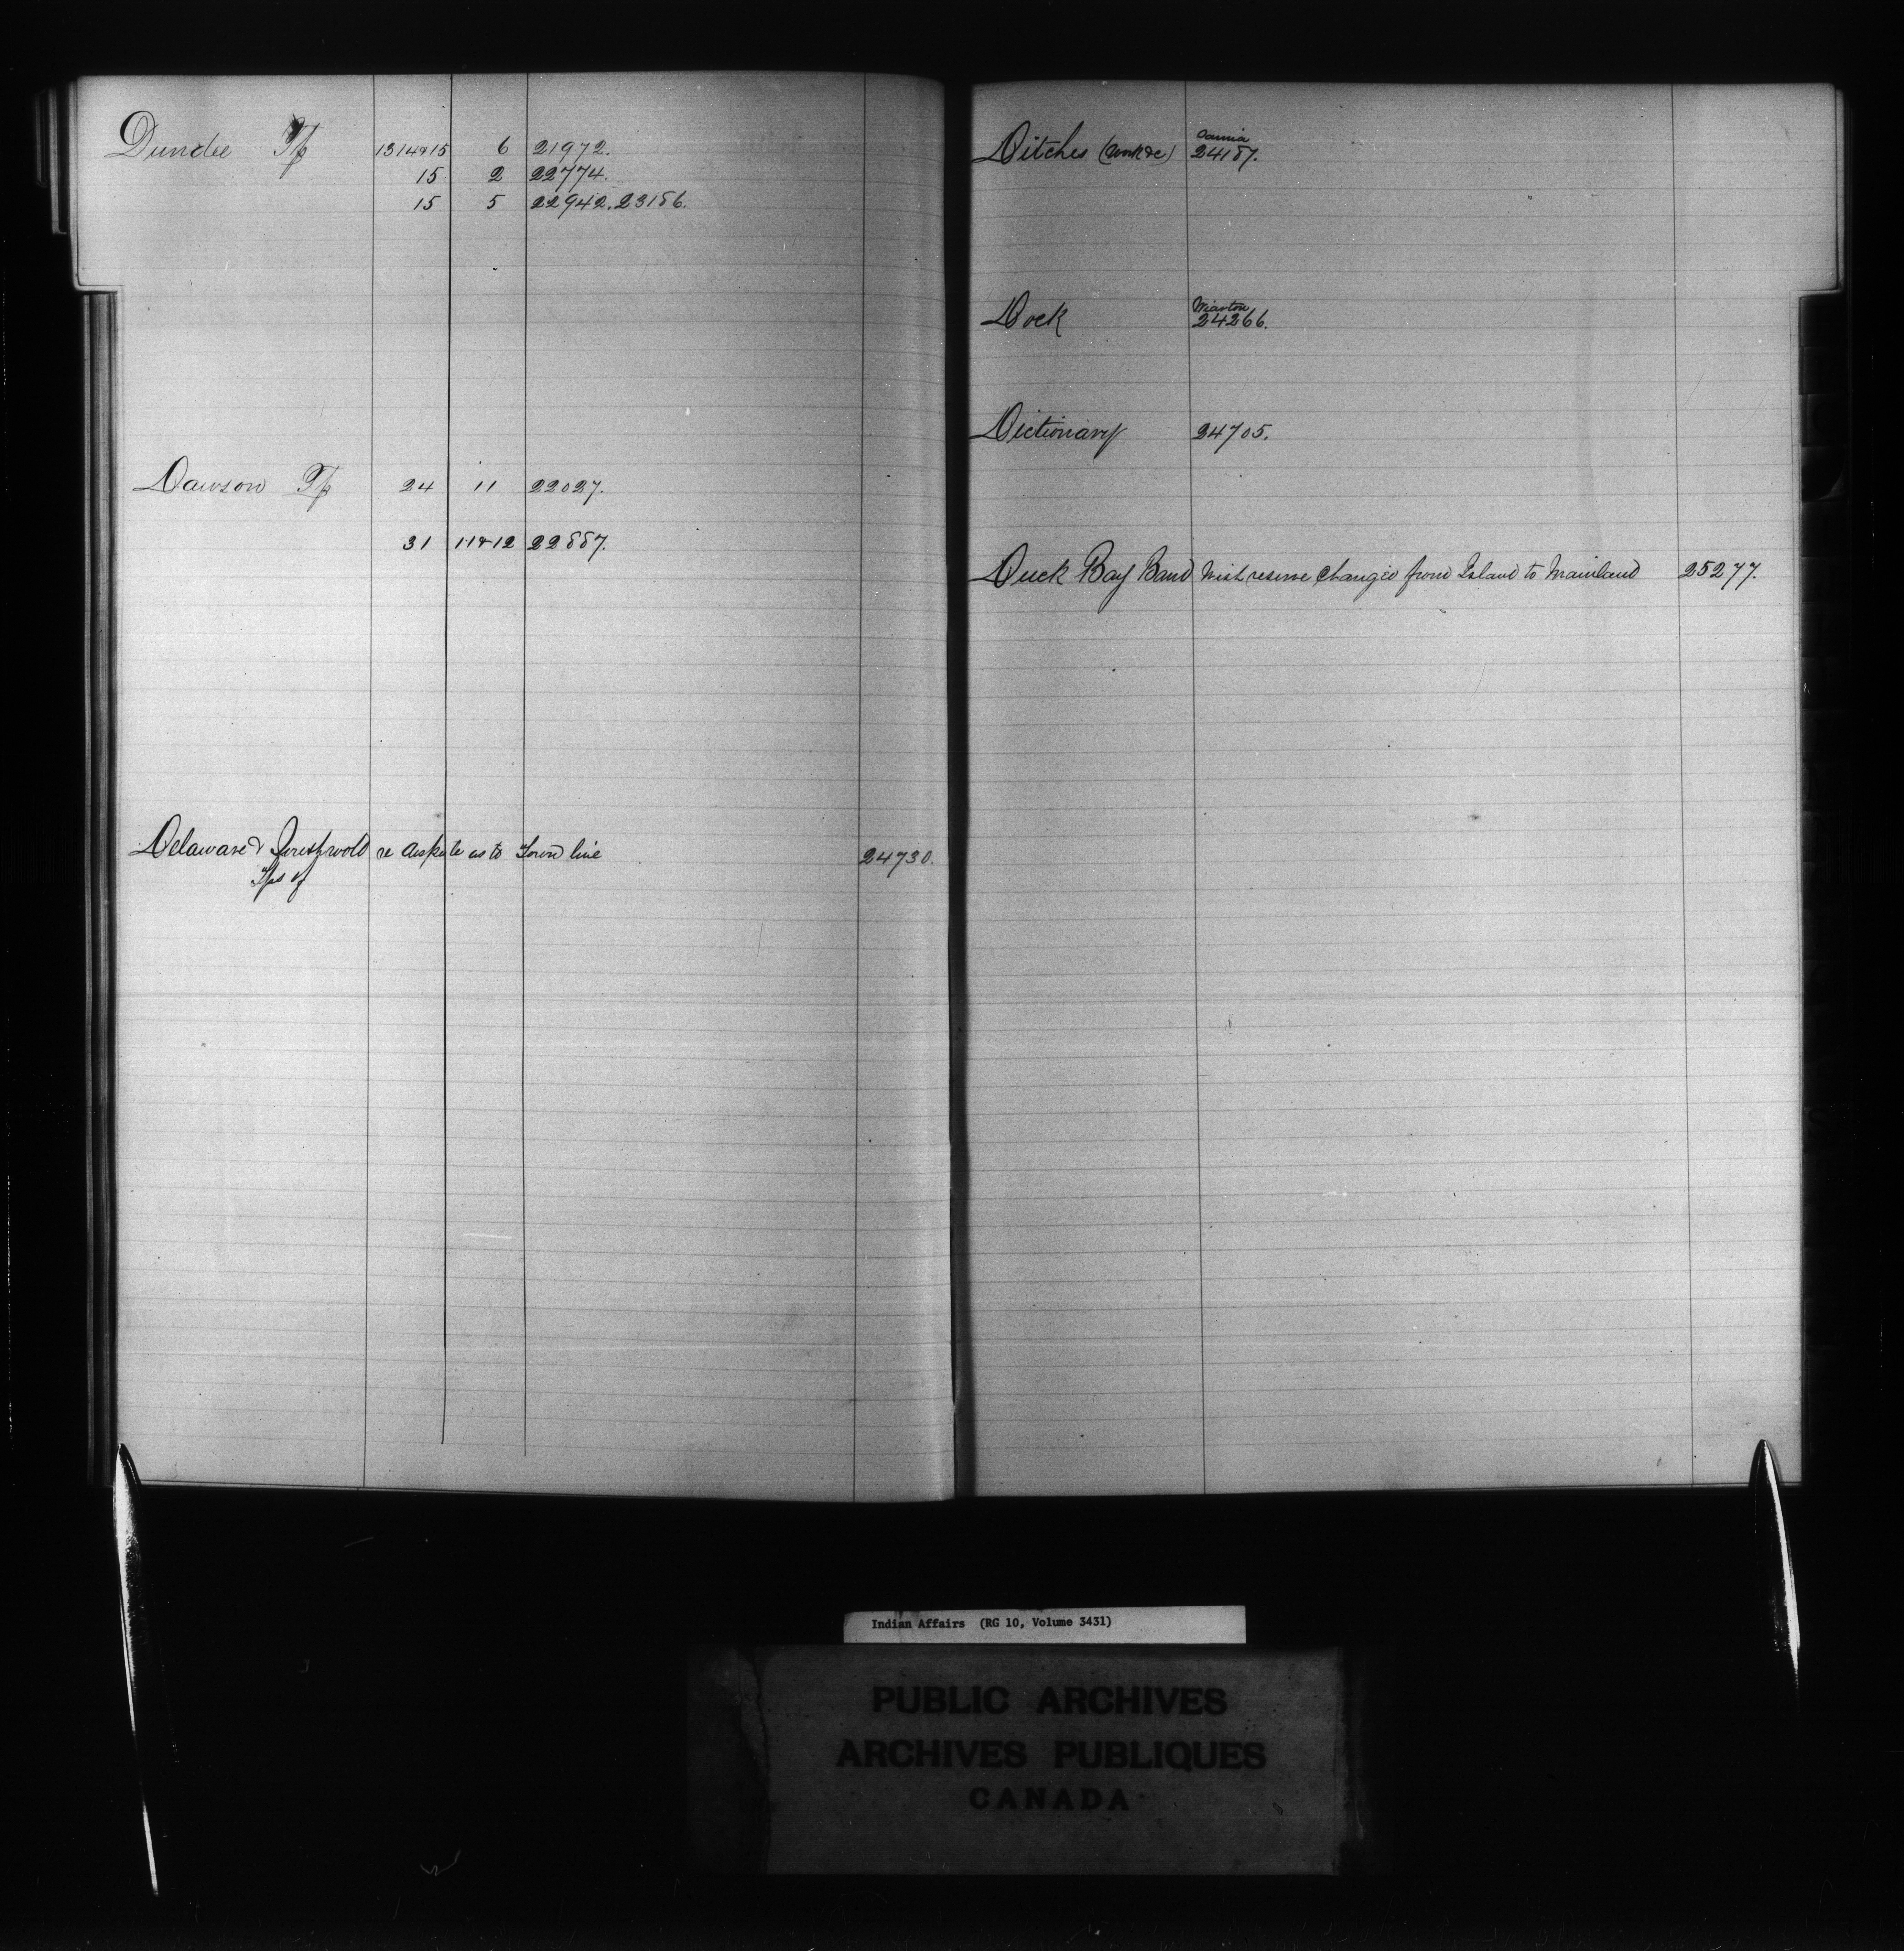 Dundee Tp 13 14 & 15 6 21972.
15 2 22774.
15 5 22942. 23186.
Dawson Tp 24 11 22027.
31 11 & 12 22887.
Delaware & Southwold re dispute as to Town line 24730.
Tps of
Sarnia
Ditches (Work &c) 24187.
Wiarton
Dock 24266.
Dictionary 24705.
Duck Bay Band Wish reserve changed from Island to Mainland 25277.
Indian Affairs (RG 10, Volume 3431)
PUBLIC ARCHIVES
ARCHIVES PUBLIQUES
CANADA